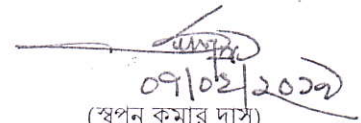 ০৭|০২|২০১৯
(স্বপন কুমার দাস)